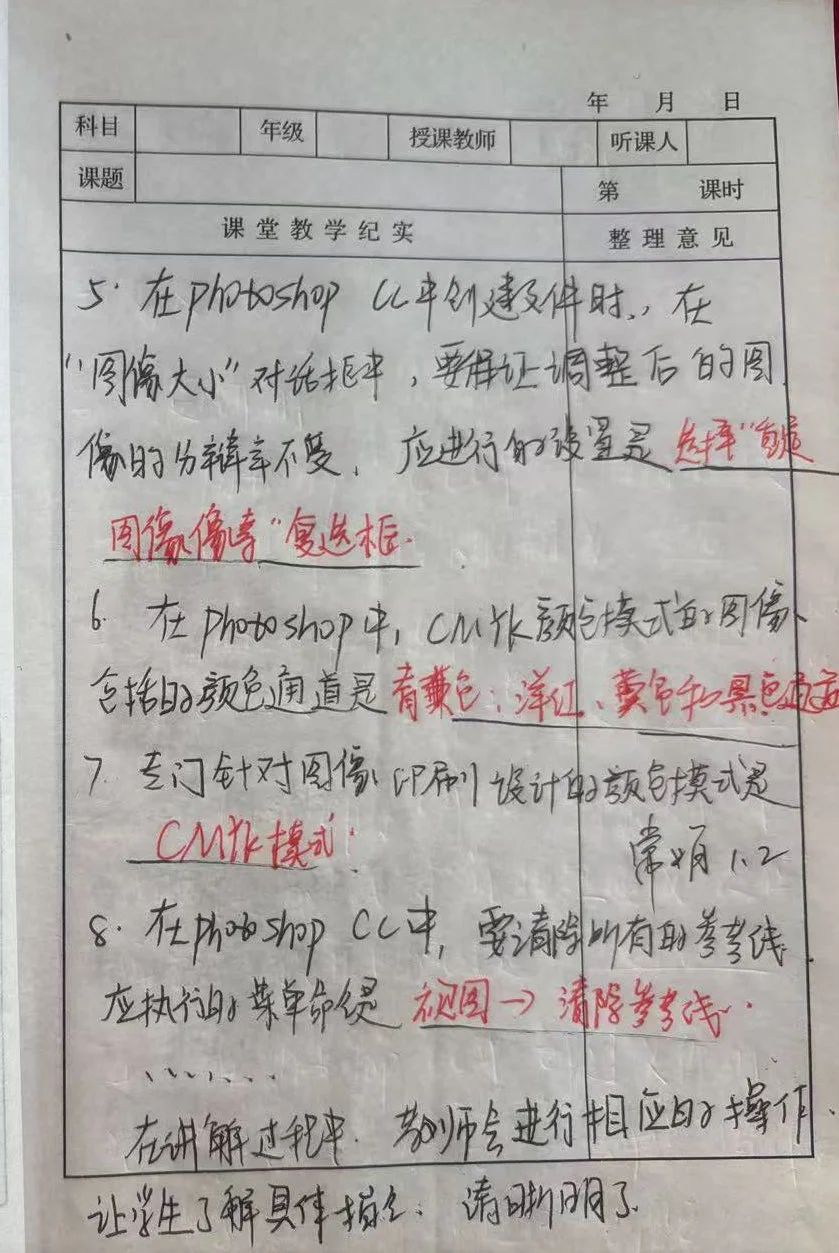 年 月 日
科目 年级 授课教师 听课人
课题 第 课时
课堂教学纪实 整理意见
5. 在photoshop CC中创建文件时,, 在
“图像大小”对话框中,要保证调整后的图
像的分辩率不变, 应进行的设置是 选择“
图像像 ”复选框.
6. 在photoshop中, CMYK颜色模式的图像
包括的颜色通道是 青 色、洋红、黄色和黑色通道
7. 专门针对图像印刷设计的颜色模式是
CMYK模式.
1、2
8. 在photoshop CC中, 要清除所有的参考线
应执行的菜单命令是 视图→清除参考线.
.......
在讲解过程中. 教师会进行相应的操作.
让学生了解具体 清晰明了.